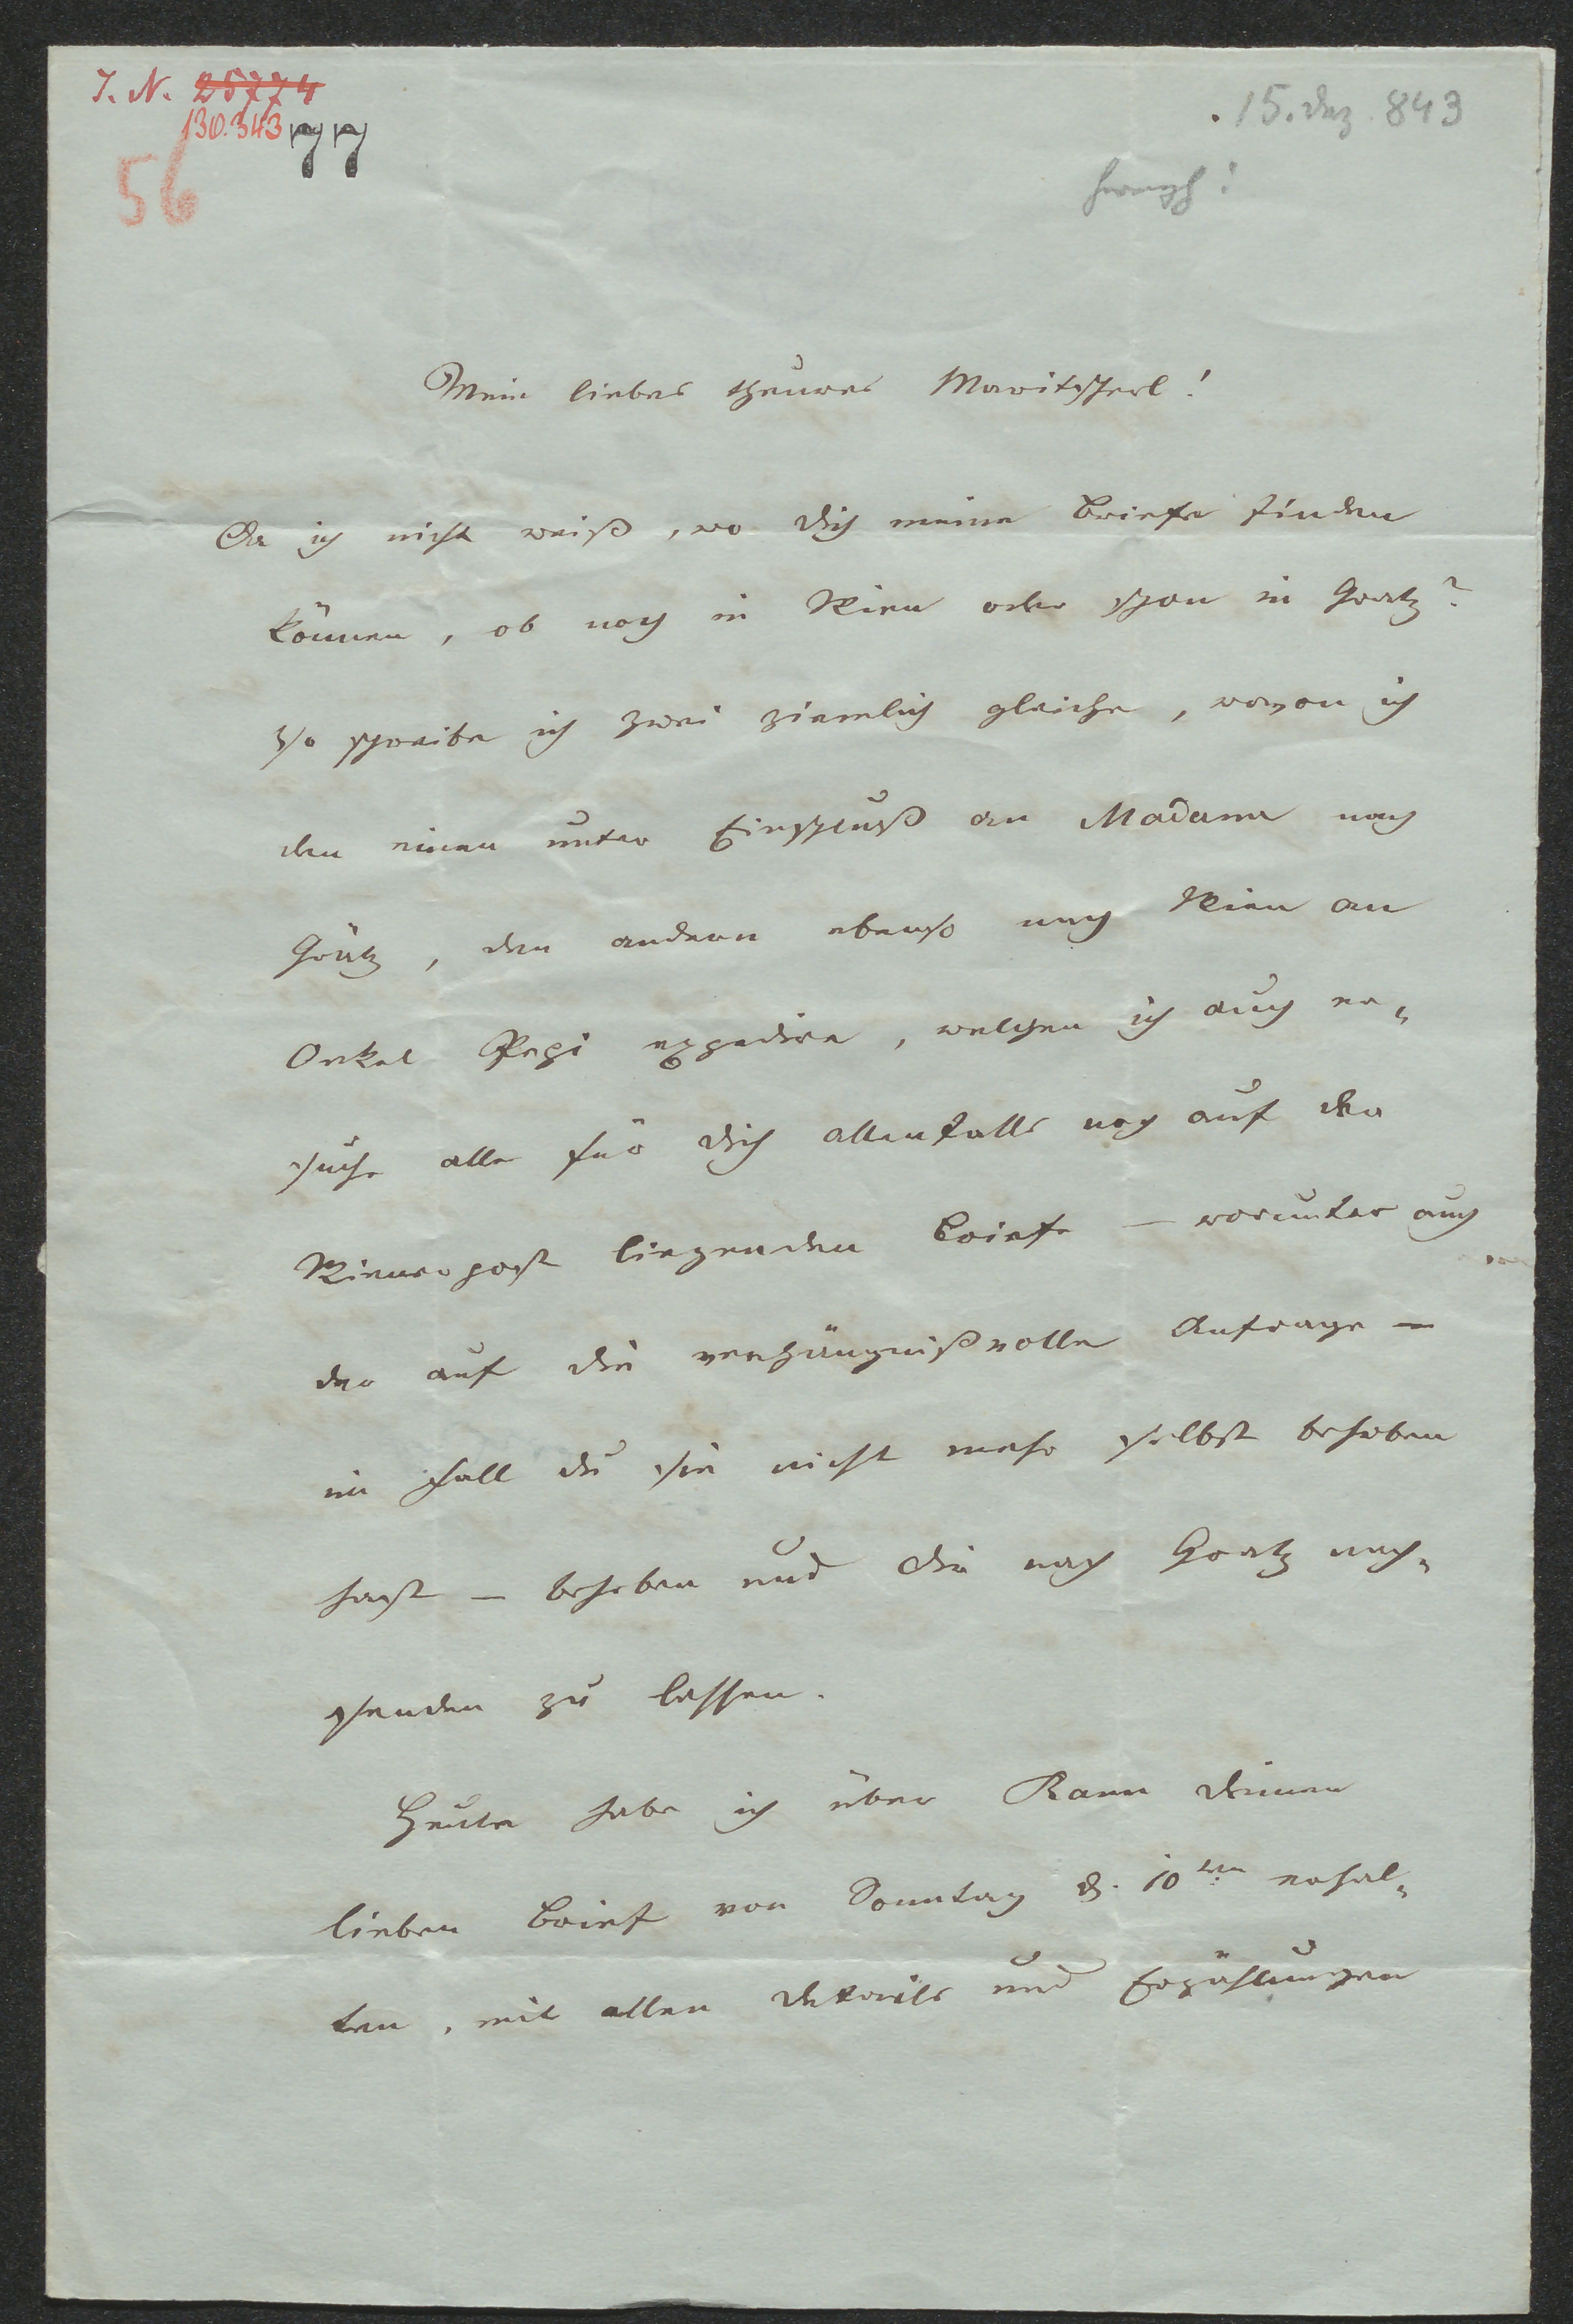 I. N. 25774
130.343
77
56
15. Dez. 843
Mein liebes theures Maritscherl!
Da ich nicht weiß, wo dich meine Briefe finden
können, ob noch in Wien oder schon in Gratz?
so schreibe ich zwei ziemlich gleiche, wovon ich
den einen unter Einschluß an Madame nach
Grätz, den andern ebenso nach Wien an
Onkel Pepi expedire, welchen ich auch er-
suche alle für dich allenfalls noch auf der
Wienerpost liegenden Briefe – worunter auch
der auf die verhängnißvolle Anfrage –
im Fall du sie nicht mehr selbst behoben
hast – beheben und dir nach Gratz nach-
senden zu lassen.
Heute habe ich über Rann deinen
lieben Brief von Sonntag d. 10ten erhal-
ten, mit allen Details und Erzählungen